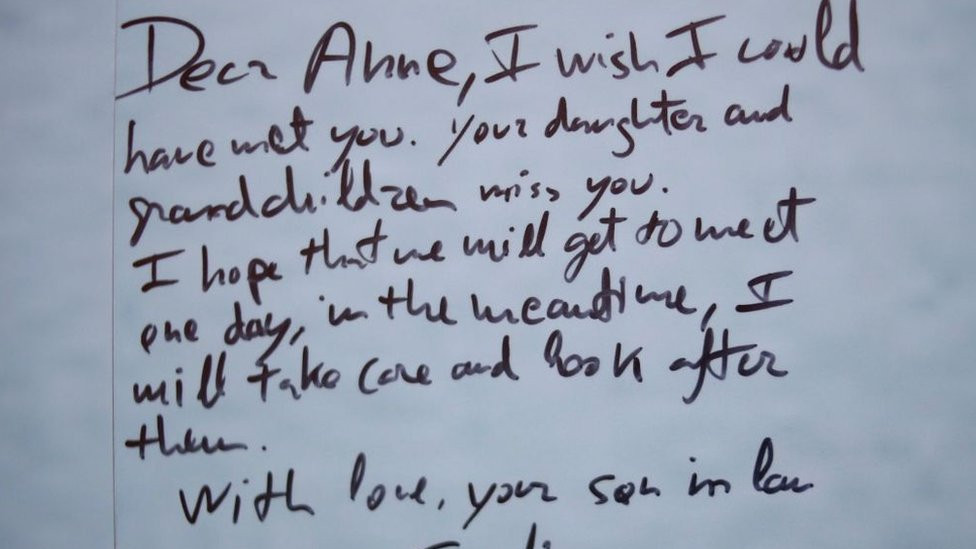 Dear Anne, I wish I could
have met you. Your daughter and
grandchildren miss you.
I hope that we will get to meet
one day, in the meantime, I
will take care and look after
them.
With love, your son in law